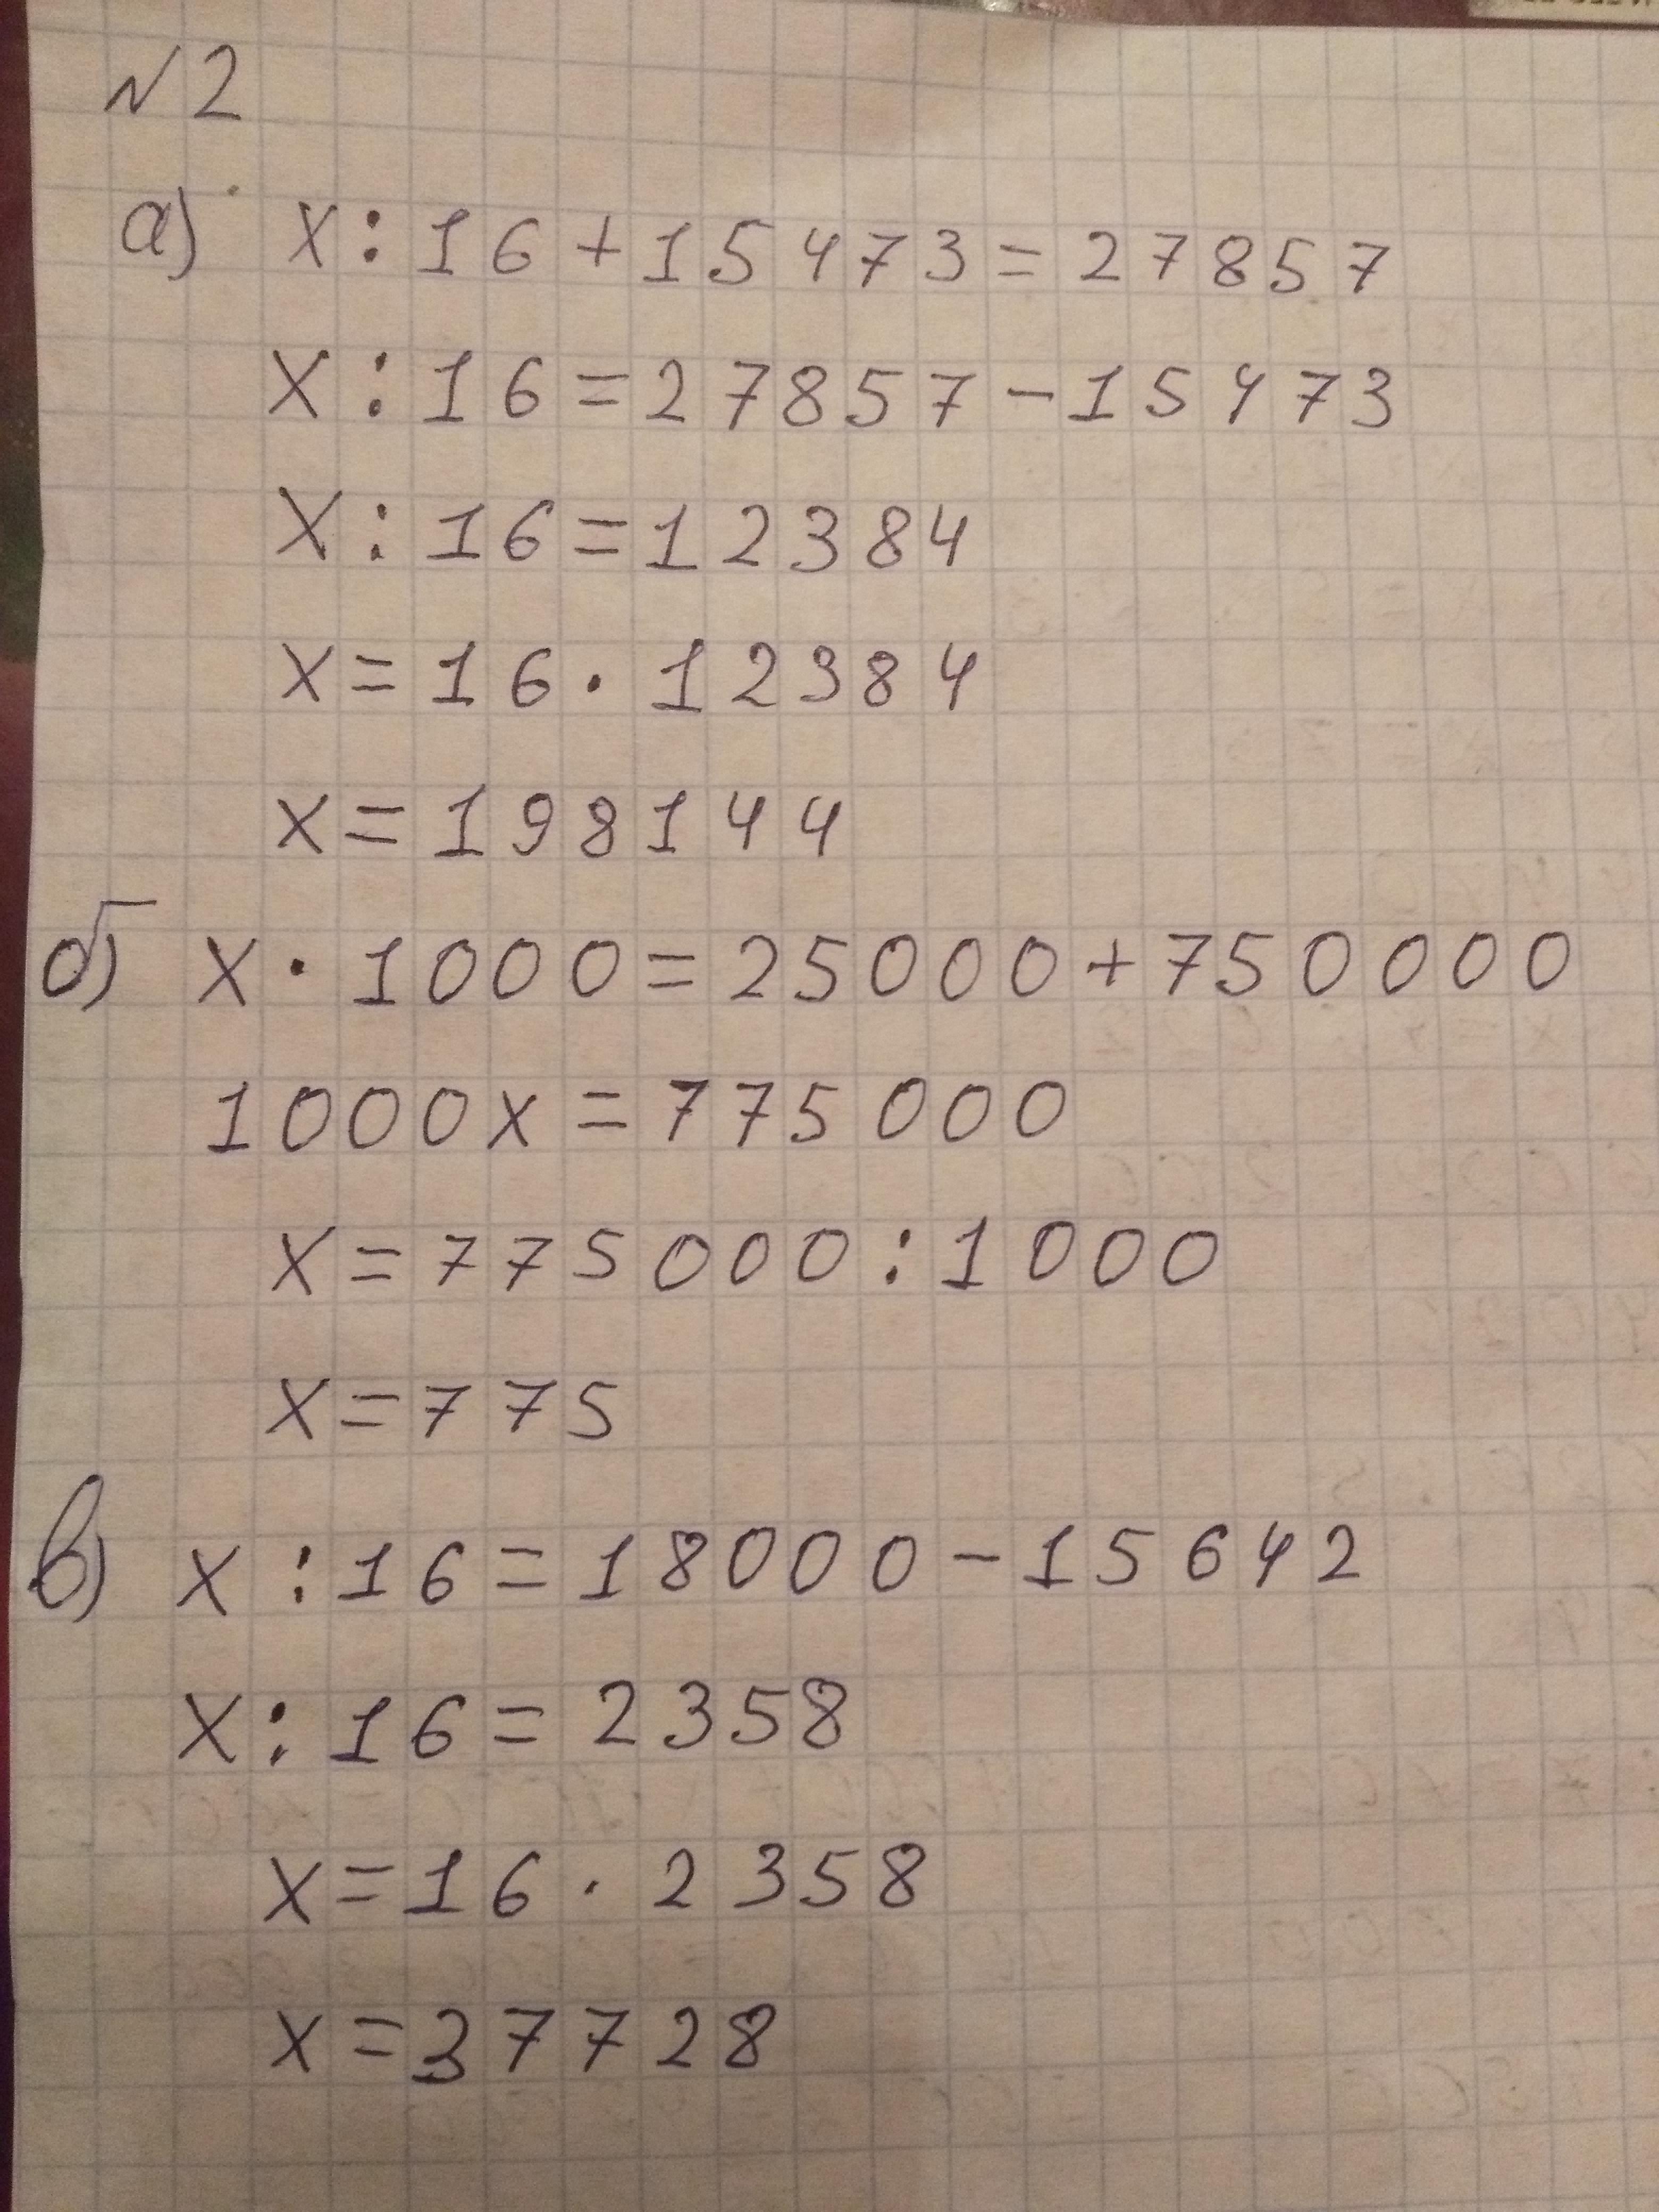 №2
а) x : 16 + 15473 = 27857
x : 16 = 27857 - 15473
x : 16 = 12384
x = 16 · 12384
x = 198144
б) x · 1000 = 25000 + 750000
1000x = 775000
x = 775000 : 1000
x = 775
в) x : 16 = 18000 - 15642
x : 16 = 2358
x = 16 · 2358
x = 37728